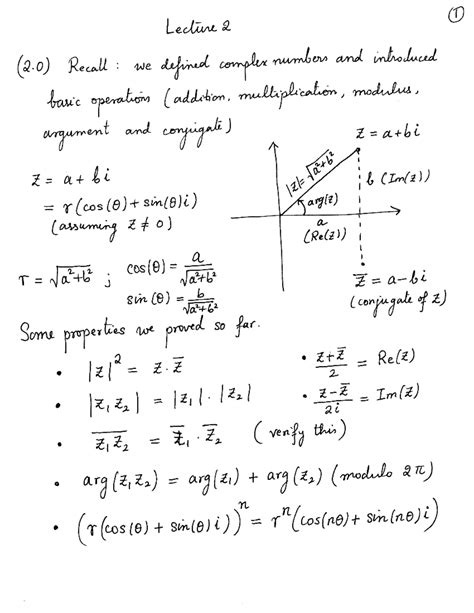 ①
Lecture 2
(2.0) Recall : we defined complex numbers and introduced
basic operations (addition, multiplication, modulus,
argument and conjugate)
z = a + bi
= r(cos(θ) + sin(θ)i)
(assuming z ≠ 0)
r = √(a²+b²) ; cos(θ) = a/√(a²+b²)
sin(θ) = b/√(a²+b²)
z = a+bi
|z| = √(a²+b²)
b (Im(z))
arg(z)
a
(Re(z))
z̅ = a-bi
(conjugate of z)
Some properties we proved so far.
• |z|² = z · z̅
• (z+z̅)/2 = Re(z)
• |z₁z₂| = |z₁| · |z₂|
• (z-z̅)/2i = Im(z)
• z̅₁z̅₂ = z̅₁ · z̅₂ (verify this)
• arg(z₁z₂) = arg(z₁) + arg(z₂) (modulo 2π)
• (r(cos(θ) + sin(θ)i))ⁿ = rⁿ(cos(nθ) + sin(nθ)i)